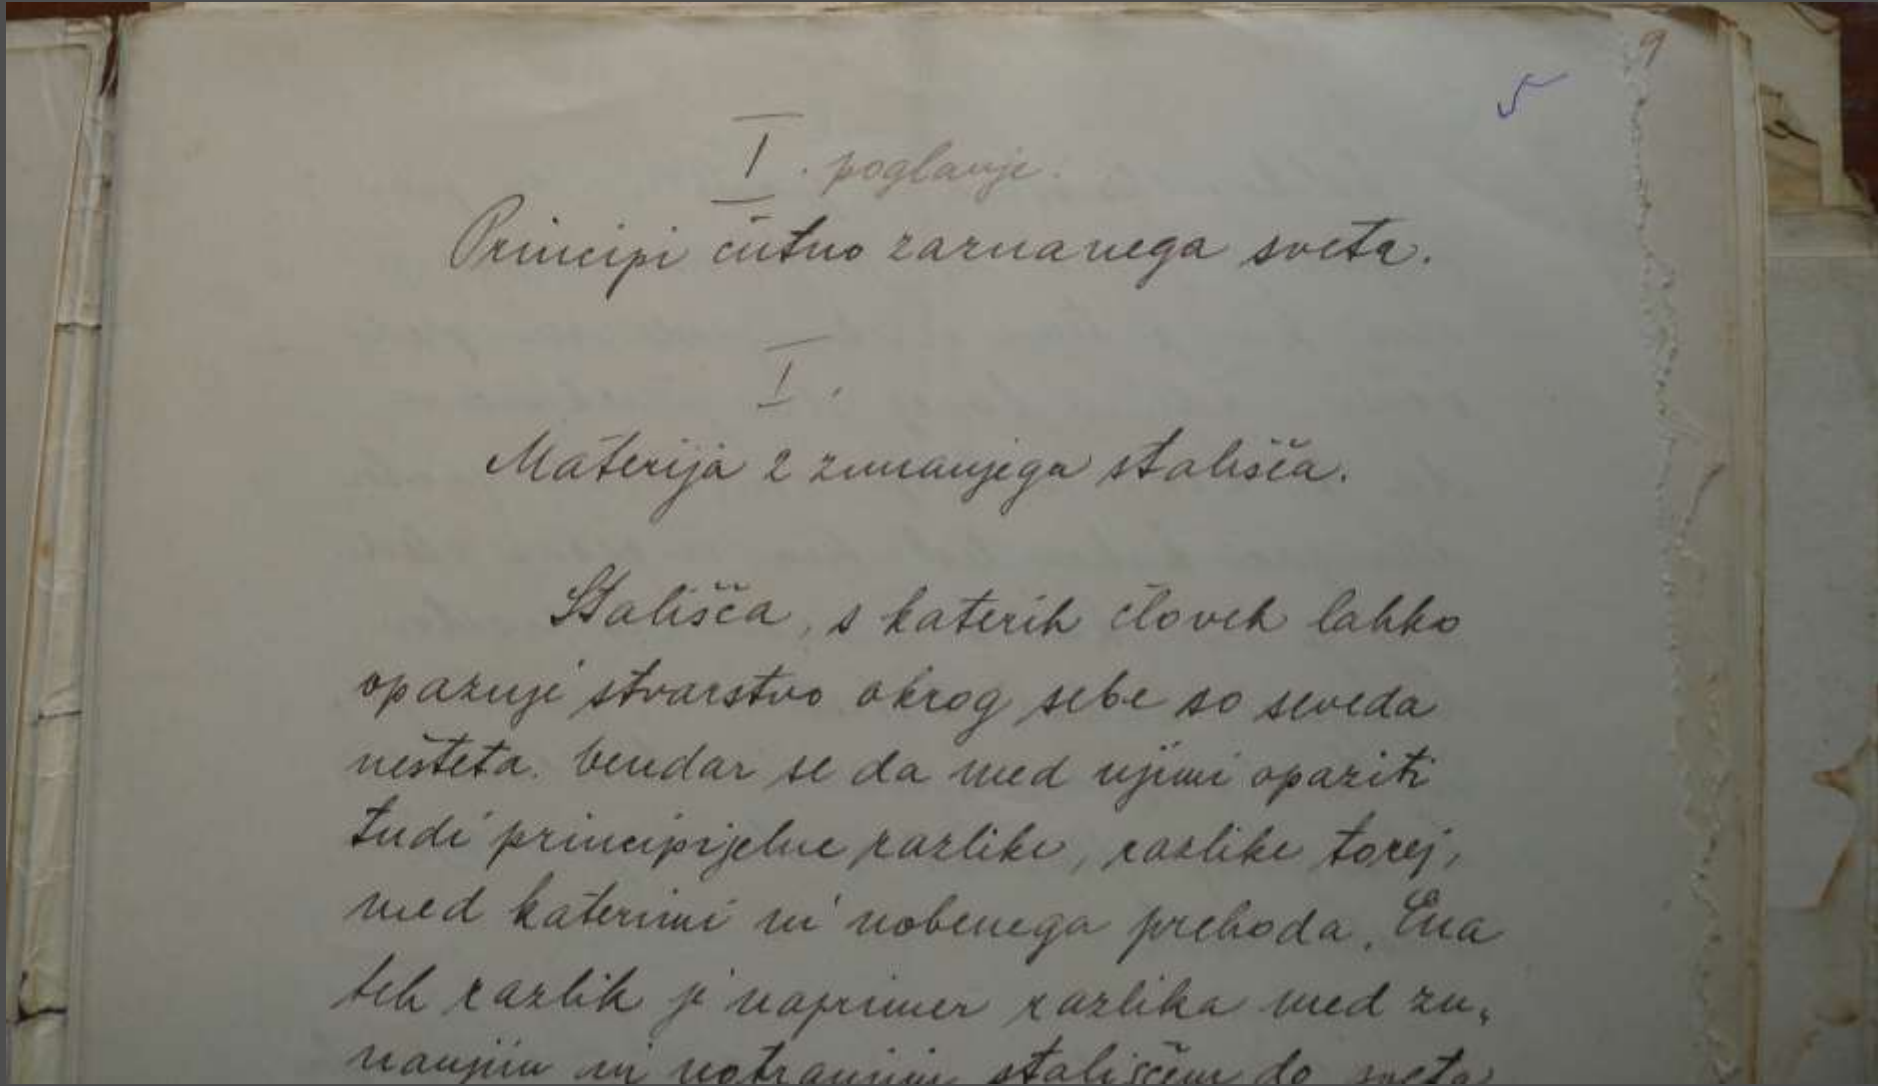 9
I. poglavje.
Principi čutno zaznanega sveta.
I.
Materija z zunanjega stališča.
Stališča, s katerih človek lahko
opazuje stvarstvo okrog sebe so seveda
nešteta. Vendar se da med njimi opaziti
tudi principijelne razlike, razlike torej,
med katerimi ni nobenega prehoda. Ena
teh razlik je naprimer razlika med zu-
nanjim in notranjim stališčem do sveta